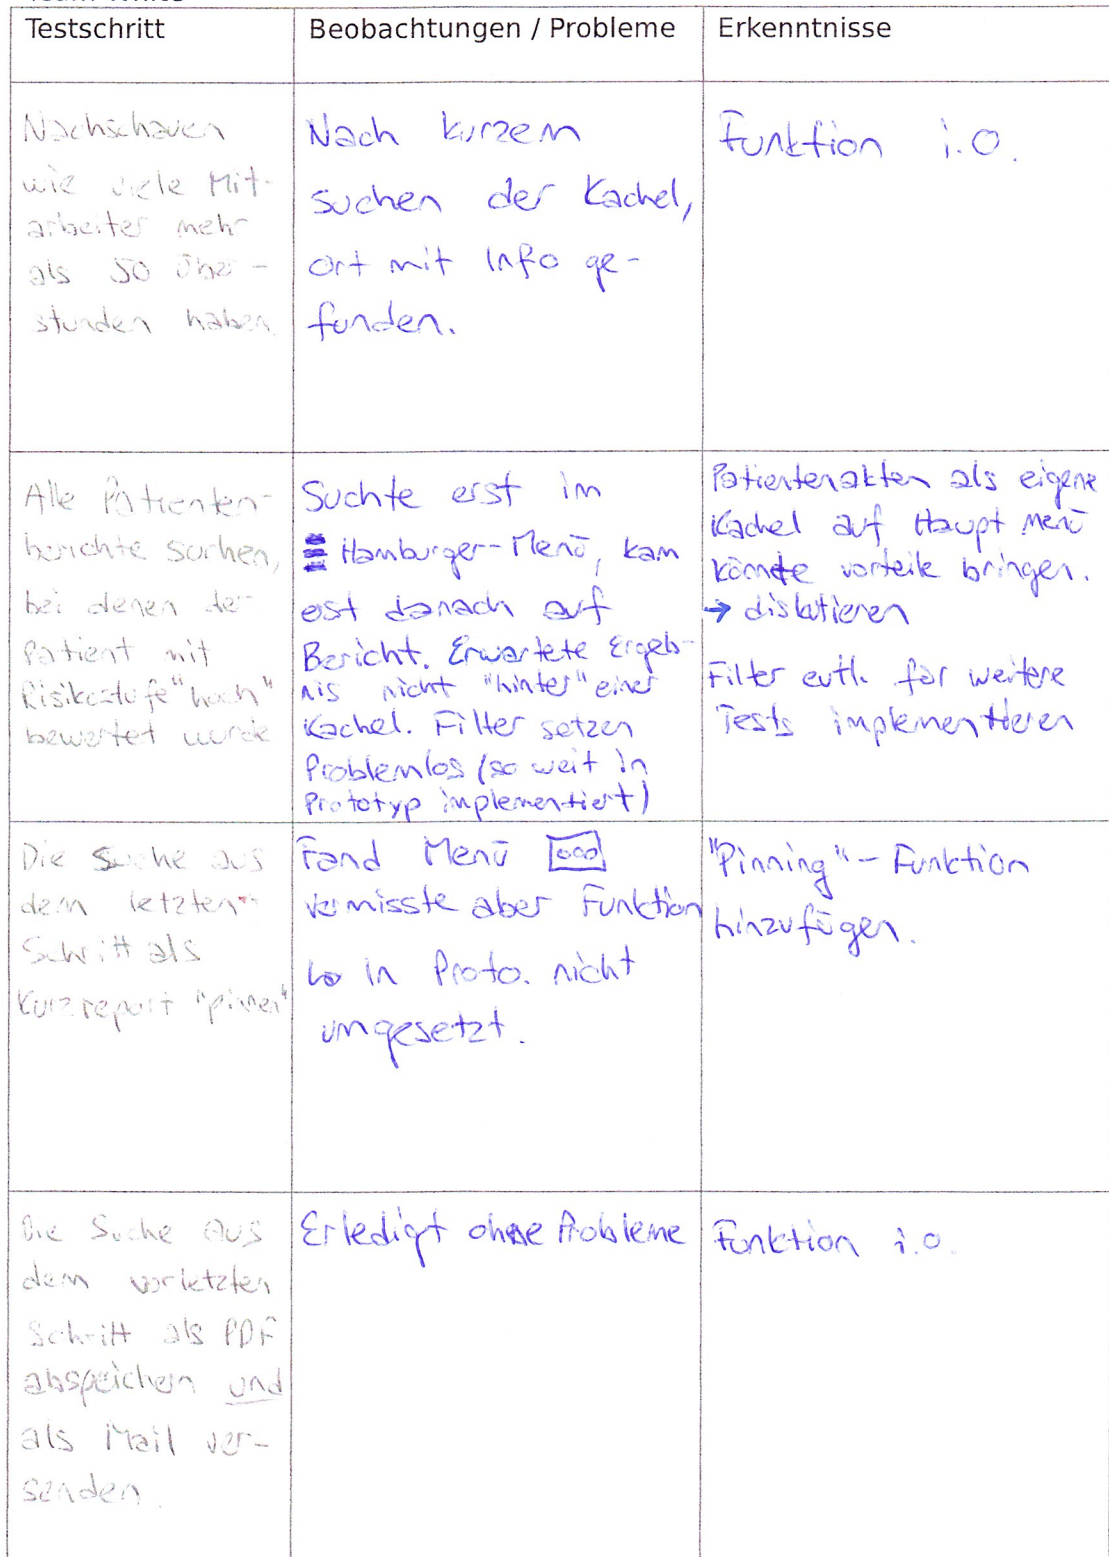 Testschritt
Beobachtungen / Probleme
Erkenntnisse
Nachschauen
wie viele Mit-
arbeiter mehr
als 50 Über-
stunden haben.
Nach kurzem
suchen der Kachel,
Ort mit Info ge-
funden.
Funktion i.O.
Alle Patienten-
berichte suchen,
bei denen der
Patient mit
Risikostufe "hoch"
bewertet wurde
Suchte erst im
Hamburger-Menü, kam
erst danach auf
Bericht. Erwartete Ergeb-
nis nicht "hinter" einer
Kachel. Filter setzen
Problemlos (so weit in
Prototyp implementiert)
Patientenakten als eigene
Kachel auf Haupt menü
könnte vorteile bringen.
→ diskutieren
Filter evtl. für weitere
Tests implementieren
Die Suche aus
dem letzten
Schritt als
Kurzreport "pinnen"
Fand Menü ooo
vermisste aber Funktion
↳ in Proto. nicht
umgesetzt.
"Pinning"-Funktion
hinzufügen.
Die Suche aus
dem vorletzten
Schritt als PDF
abspeichern und
als Mail ver-
senden.
Erledigt ohne Probleme
Funktion i.O.